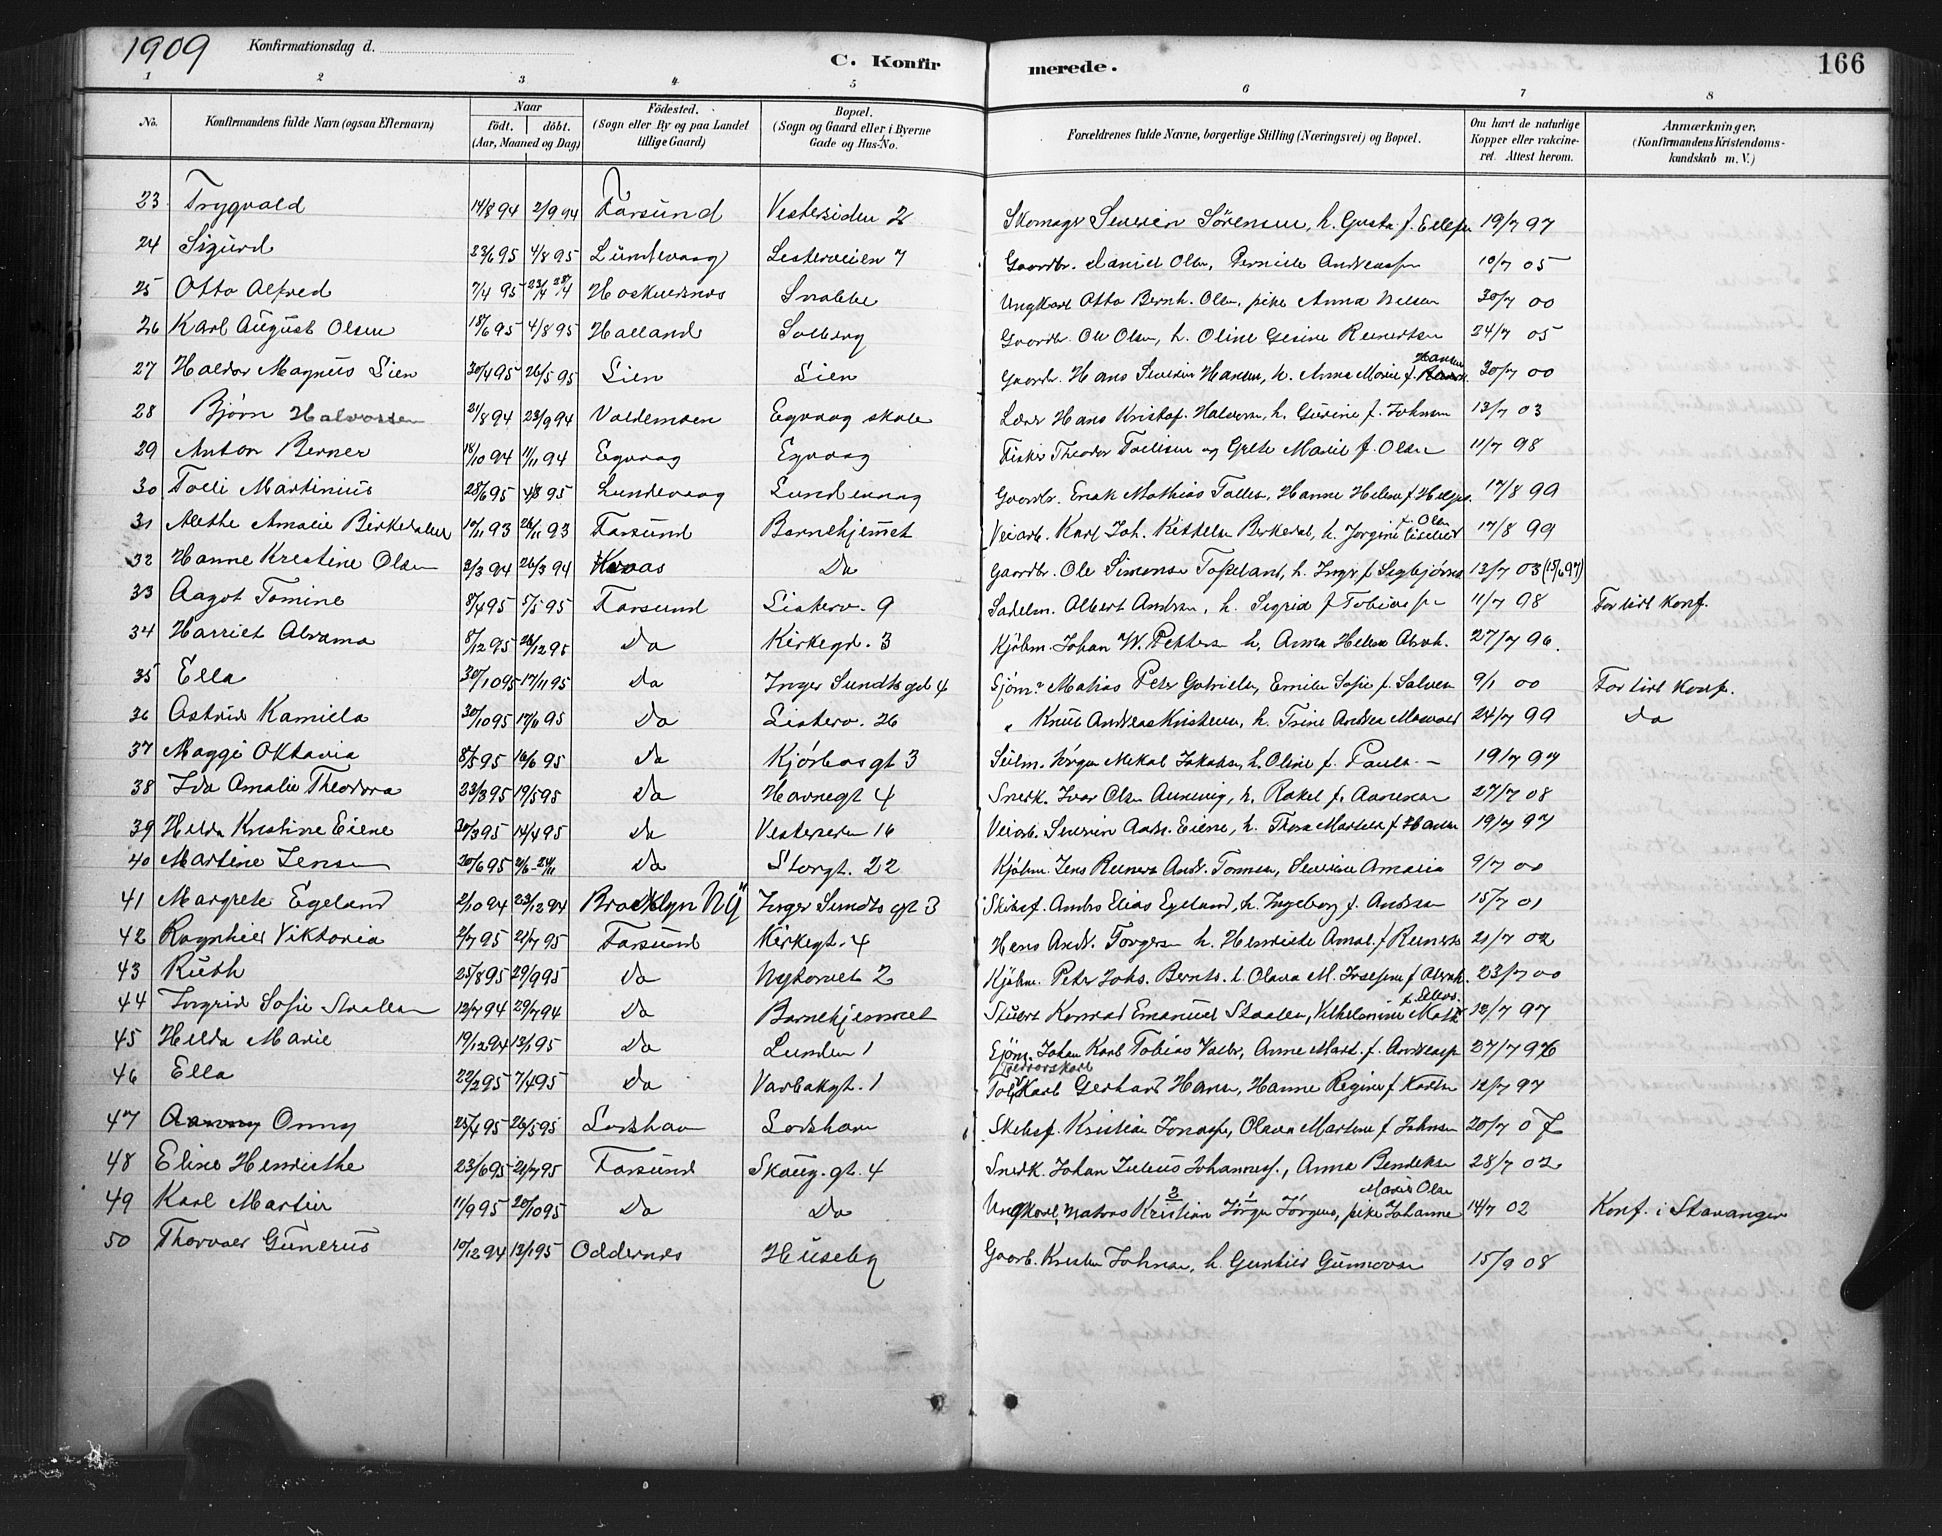 1909 Konfirmationsdag d. C. Konfirmerede. 166
1 2 3 4 5 6 7 8
No. Konfirmandens fulde Navn (ogsaa Efternavn) Naar födt. döbt. (Aar, Maaned og Dag) Födested. (Sogn eller By og paa Landet tillige Gaard) Bopæl. (Sogn og Gaard eller i Byerne Gade og Hus-No. Forældrenes fulde Navne, borgerlige Stilling (Næringsvei) og Bopæl. Om havt de naturlige Kopper eller vakcineret. Attest herom. Anmærkninger. (Konfirmandens Kristendomskundskab m. V.)
23 Trygvald 14/8 94 2/9 94 Farsund Vestersiden 2 Skomagr Severin Sörensen, h. Gusta f. 19/7 97
24 Sigurd 23/6 95 4/8 95 Lundevaag Listerveien 7 Gaardbr. Daniel Olsen, Pernille 10/7 05
25 Otto Alfred 7/4 95 28/4 Snabbe Ungkarl Otto Bernh. Olsen, pike Anna Nelsen 30/7 00
26 Karl August Olsen 18/6 95 4/8 95 Halland Solberg Gaardbr. Ole Olsen, h. Oline Gesine Reinertsen 24/7 05
27 Haldor Magnus Lien 30/4 95 26/5 95 Lien Lien Gaardbr. Hans Severin Hansen, h. Anna Marie f. Hansen 30/7 00
28 Bjørn Halvorsen 21/8 94 23/9 94 Valdemoen Egvaag skole Lærer Hans Kristof. Halvorsen, h. f. Johnsen 13/7 03
29 Anton Berner 18/10 94 11/11 94 Egvaag Egvaag Fisker Theodor og Grete Marie f. Olsen 11/7 98
30 Tolli Martinius 28/6 95 4/8 95 Lundevaag Lundevaag Gaardbr. Enok Mathias Hanne Helene f. 17/8 99
31 Alethe Amalie Birkedalen 10/11 93 26/11 93 Farsund Barnehjemmet Veiarb. Karl Joh. Kittelsen Birkedal, h. Jorgine f. Olsen 17/8 99
32 Hanne Kristine Olsen 2/3 94 26/3 94 Do Gaardbr. Ole Simonsen h. Inger f. 13/7 03 (15/6 97)
33 Aagot Tomine 8/4 95 5/5 95 Farsund Listerv. 9 Sadelm. Albert h. Sigrid f Tobiassen 11/7 98 For tirl Konf.
34 Harriet Abrama 8/12 95 26/12 95 Do Kirkegd. 3 Kjøbm. Johan W. Petters h. Anna Helene Abrah. 27/7 96.
35 Ella 30/10 95 17/11 95 Do Inger Sundts gd 4 Sjöm. Matias Peter Gabrielsen, Emilie Sofie f. Salvesen 9/1 00 For tirl Konf.
36 Astrid Kamilla 30/10 95 17/11 95 Do Listerv. 26 „ Knut Andreas Kristensen, h. Trine Andrea 24/7 99 Do
37 Maggi Oktavia 8/5 95 16/6 95 Do Kjørbosgt 3 Seilm. Jörgen Mekal Jakobsen, h. Oline f. Pauls- 19/7 97
38 Ida Amalie Theodora 23/3 95 19/5 95 Do Havnegt 4 Snedk. Ivar Olsen h. Rakel f. Aanensen 27/7 08
39 Helda Kristine Eiene 30/3 95 14/4 95 Do Vestersiden 16 Veiarb. Severin Andr. Eiene, h. Thora f. Hansen 19/7 97
40 Martine Jensen 20/6 95 Do Storgt. 22 Kjøbm. Jens Reinert Andr. Tonnesen, Severine Amalia 9/7 00
41 Margrete Egeland 2/10 94 23/12 94 Brooklyn NY Inger Sundts gt 3 Skibsf. Andrs Elias Egeland, h. Ingeborg f. Andersen 15/7 01
42 Ragnhild Viktoria 2/7 95 21/7 95 Farsund Kirkegt. 4 Hans Andr. Torgersen h. Henriette Amal. f Reinerts 21/7 02
43 Ruth 25/8 95 29/9 95 Do Nytorvet 2 Kjöbm. Peter Johs. Bernts. h. Olava M. Josefine f. Abrah. 23/7 00
44 Ingrid Sofie Staalesen 12/7 94 29/7 94 Do Barnehjemmet Stuert Konrad Emanuel Staalesen, Vilhelmine 12/7 97
45 Helda Marie 19/12 94 13/1 95 Do Lunden 1 Sjöm. Johan Karl Tobias Anne Mart. f. Andreassen 27/7 96
46 Ella 22/2 95 7/4 95 Do Varbakgt. 1 Karl Gerhard Hansen, Hanne Regine f Karlsen 12/7 97
47 Onny 25/4 95 26/5 95 Loshavn Loshavn Skibsf. Kristian Jonassen, Olava Martine f Johnsen 20/7 07
48 Eline Henriethe 23/6 95 21/7 95 Farsund Skaug. gt. 4 Snedk. Johan Julius Johanness., Anna Bendiksen 28/7 02
49 Karl Martin 11/9 95 20/10 95 Do Do Ungkarl, Mathias Kristian Jörgen Jörgens, pike Johanne Marie Olsen 14/7 02 Konf. i Stavanger
50 Thorvald Gunerius 10/12 94 13/1 95 Oddernes Huseby Gaardb. Kristen Johnsen, h. Gunhild Gunnersen 15/9 08